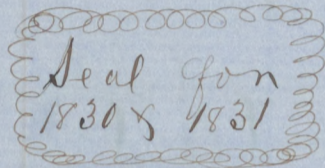 Seal for
1830 & 1831